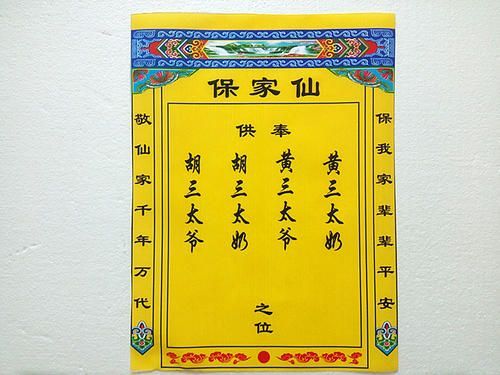 保家仙
敬仙家千年万代
供奉
胡三太爷
胡三太奶
黄三太爷
黄三太奶
之位
保我家辈辈平安